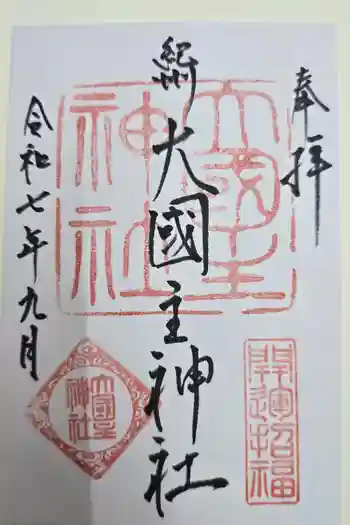 奉拝
紀州
大國主神社
令和七年九月
大國主
神社
開運招福
大國主
神社